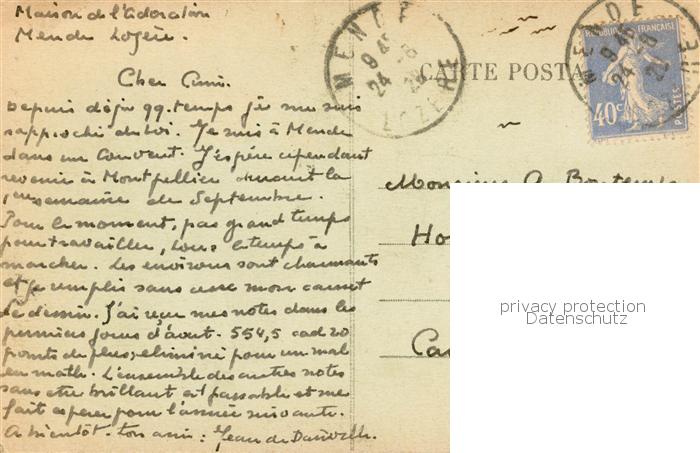 Maison de l'adoration
Mende Lozère.
Cher Ami.
Depuis déjà qq. temps je me suis
rapproché de toi. Je suis à Mende
dans un Couvent. J'espère cependant
revenir à Montpellier durant la
semaine de Septembre.
Pour le moment, pas grand temps
pour travailler, tout le temps à
marcher. Les environs sont charmants
et je remplis sans cesse mon carnet
de dessin. J'ai reçu mes notes dans les
premiers jours d'août. 554,5 cad 20
points de plus, eliminé pour un mal
en math. L'ensemble des autres notes
sans etre brillant est passable et me
fait esperer pour l'année suivante.
A bientôt. ton ami: Jean de
MENDE
9 45
24
LOZERE
CARTE POSTA
MENDE
9 45
24
REPUBLIQUE FRANÇAISE
40c
POSTES
Monsieur
Ho
Ca
privacy protection
Datenschutz